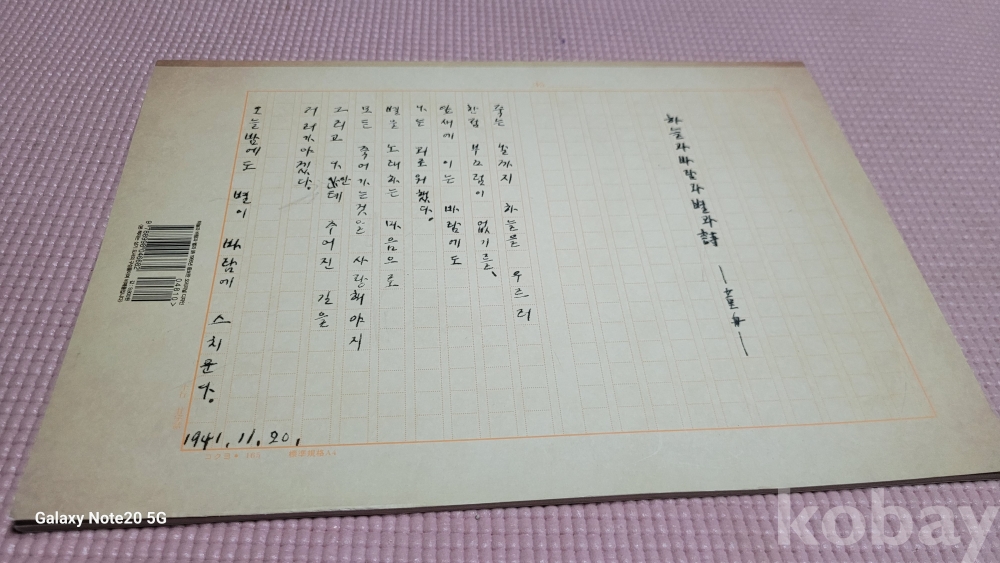 하늘과 바람과 별과 詩 —童舟—
죽는 날까지 하늘을 우르러
한점 부끄럼이 없기를、
잎새에 이는 바람에도
나는 괴로워했다.
별을 노래하는 마음으로
모든 죽어가는것을 사랑해야지
그리고 나안테 주어진 길을
거러가야겠다.
오늘밤에도 별이 바람에 스치운다.
1941.11.20.
標準規格A4
04810>
Galaxy Note20 5G
kobay